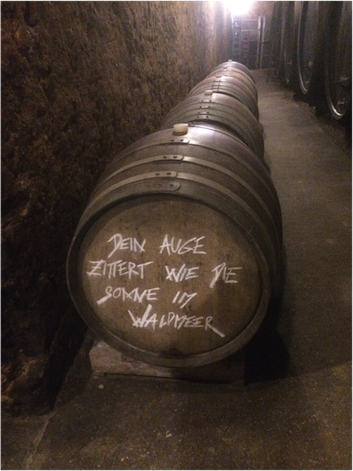 DEIN AUGE
ZITTERT WIE DIE
SONNE IM
WALDMEER